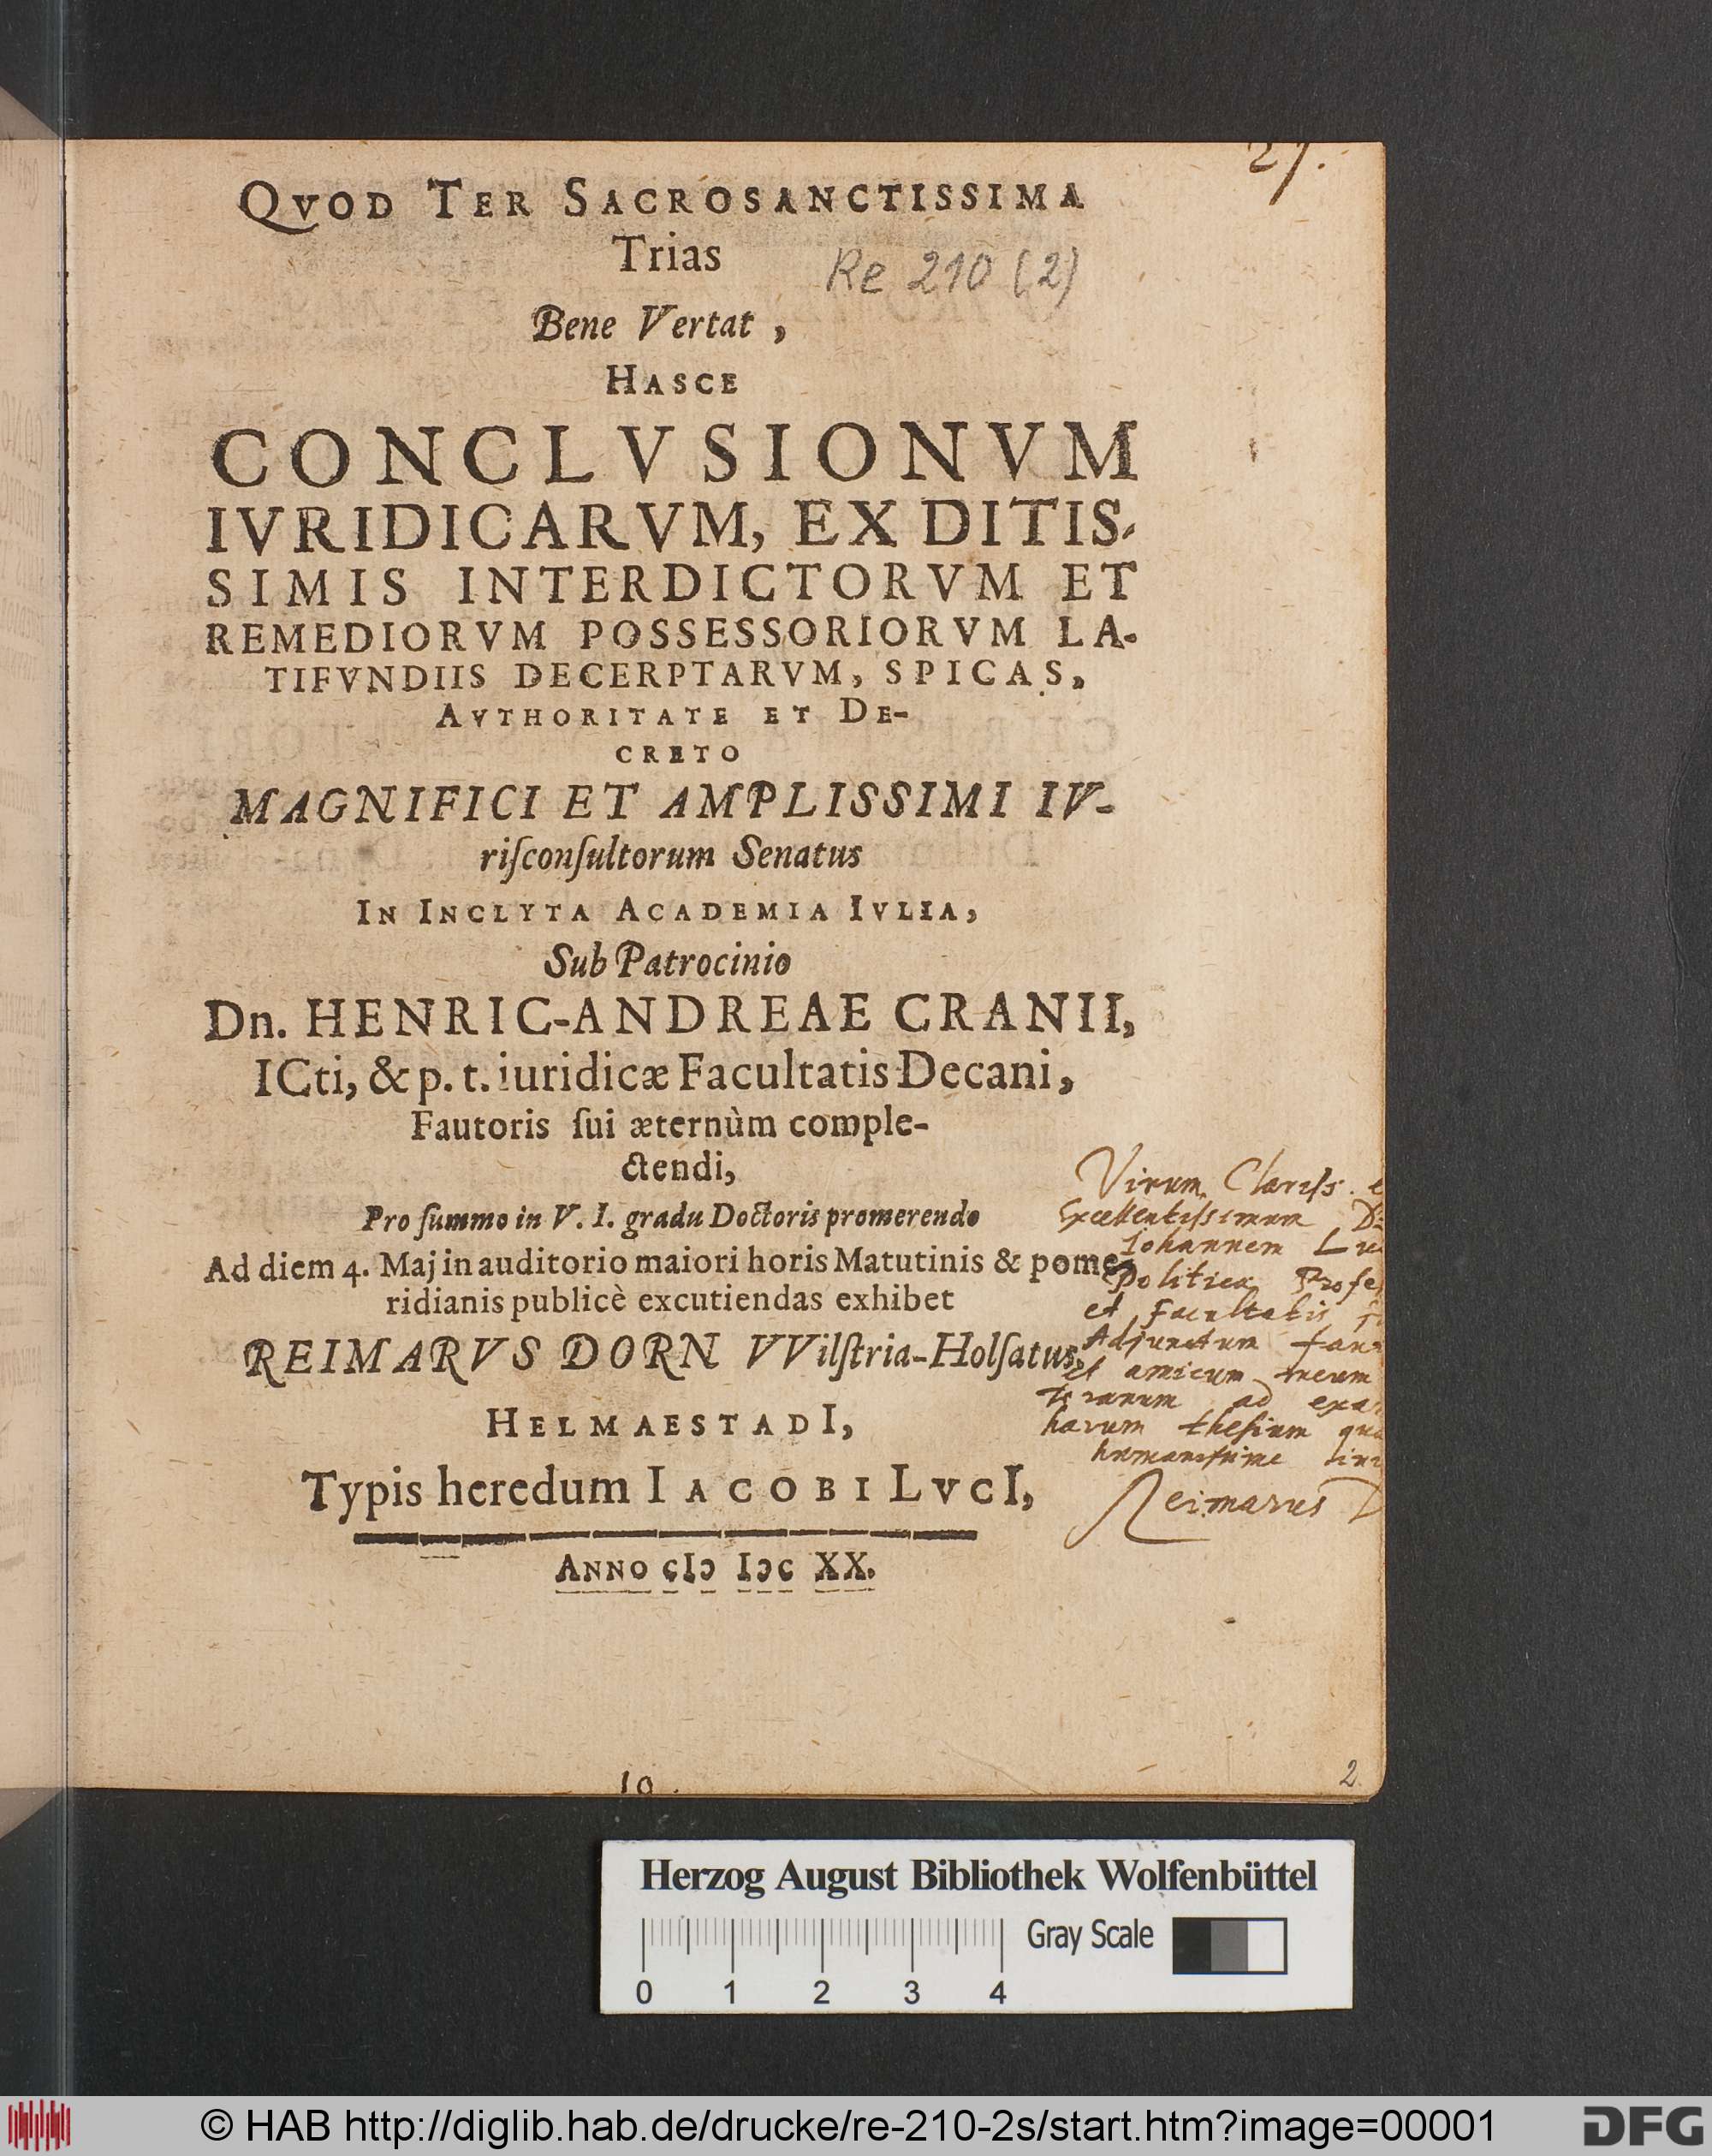 27.
QVOD TER SACROSANCTISSIMA
Trias
Re 210 (2)
Bene Vertat,
HASCE
CONCLVSIONVM
IVRIDICARVM, EX DITIS-
SIMIS INTERDICTORVM ET
REMEDIORVM POSSESSORIORVM LA-
TIFVNDIIS DECERPTARVM, SPICAS,
AVTHORITATE ET DE-
CRETO
MAGNIFICI ET AMPLISSIMI IV-
riſconſultorum Senatus
IN INCLYTA ACADEMIA IVLIA,
Sub Patrocinio
Dn. HENRIC-ANDREAE CRANII,
ICti, & p. t. iuridicæ Facultatis Decani,
Fautoris ſui æternùm comple-
ctendi,
Pro ſummo in V. I. gradu Doctoris promerendo
Ad diem 4. Maj in auditorio maiori horis Matutinis & pome-
ridianis publicè excutiendas exhibet
REIMARVS DORN VVilſtria-Holſatus,
HELMAESTADI,
Typis heredum IACOBI LVCI,
ANNO CIↃ IↃC XX.
Virum Clariſs. e
Excellentiſsimum D
Iohannem Lu
Politices Profeſ
et Facultatis
Adjunctum
et amicum meum
ad exa
harum theſium qua
Reimarus D
10.
2
Herzog August Bibliothek Wolfenbüttel
Gray Scale
0 1 2 3 4
© HAB http://diglib.hab.de/drucke/re-210-2s/start.htm?image=00001
DFG